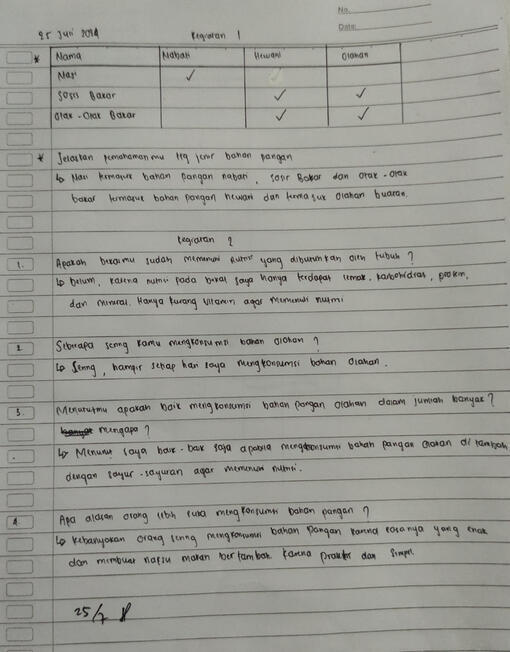 No.
Date:
25 Juli 2024
Kegiatan 1
* Nama Nabati Hewani Olahan
Nasi ✓
Sosis Bakar ✓ ✓
Otak-Otak Bakar ✓ ✓
* Jelaskan pemahamanmu ttg jenis bahan pangan
↳ Nasi termasuk bahan pangan nabati, sosis Bakar dan otak-otak
bakar termasuk bahan pangan hewani dan termasuk olahan buatan.
Kegiatan 2
1. Apakah bekalmu sudah memenuhi nutrisi yang dibutuhkan oleh tubuh ?
↳ belum, karena nutrisi pada bekal saya hanya terdapat lemak, karbohidrat, protein,
dan mineral. Hanya kurang vitamin agar memenuhi nutrisi
2. Seberapa sering kamu mengkonsumsi bahan olahan ?
↳ Sering, hampir setiap hari saya mengkonsumsi bahan olahan.
3. Menurutmu apakah baik mengkonsumsi bahan pangan olahan dalam jumlah banyak ?
mengapa ?
↳ Menurut saya baik-baik saja apabila mengkonsumsi bahan pangan olahan di tambah
dengan sayur-sayuran agar memenuhi nutrisi.
4. Apa alasan orang lebih suka mengkonsumsi bahan pangan ?
↳ kebanyakan orang sering mengkonsumsi bahan pangan karena rasanya yang enak
dan membuat nafsu makan bertambah karena praktis dan simpel.
25/7